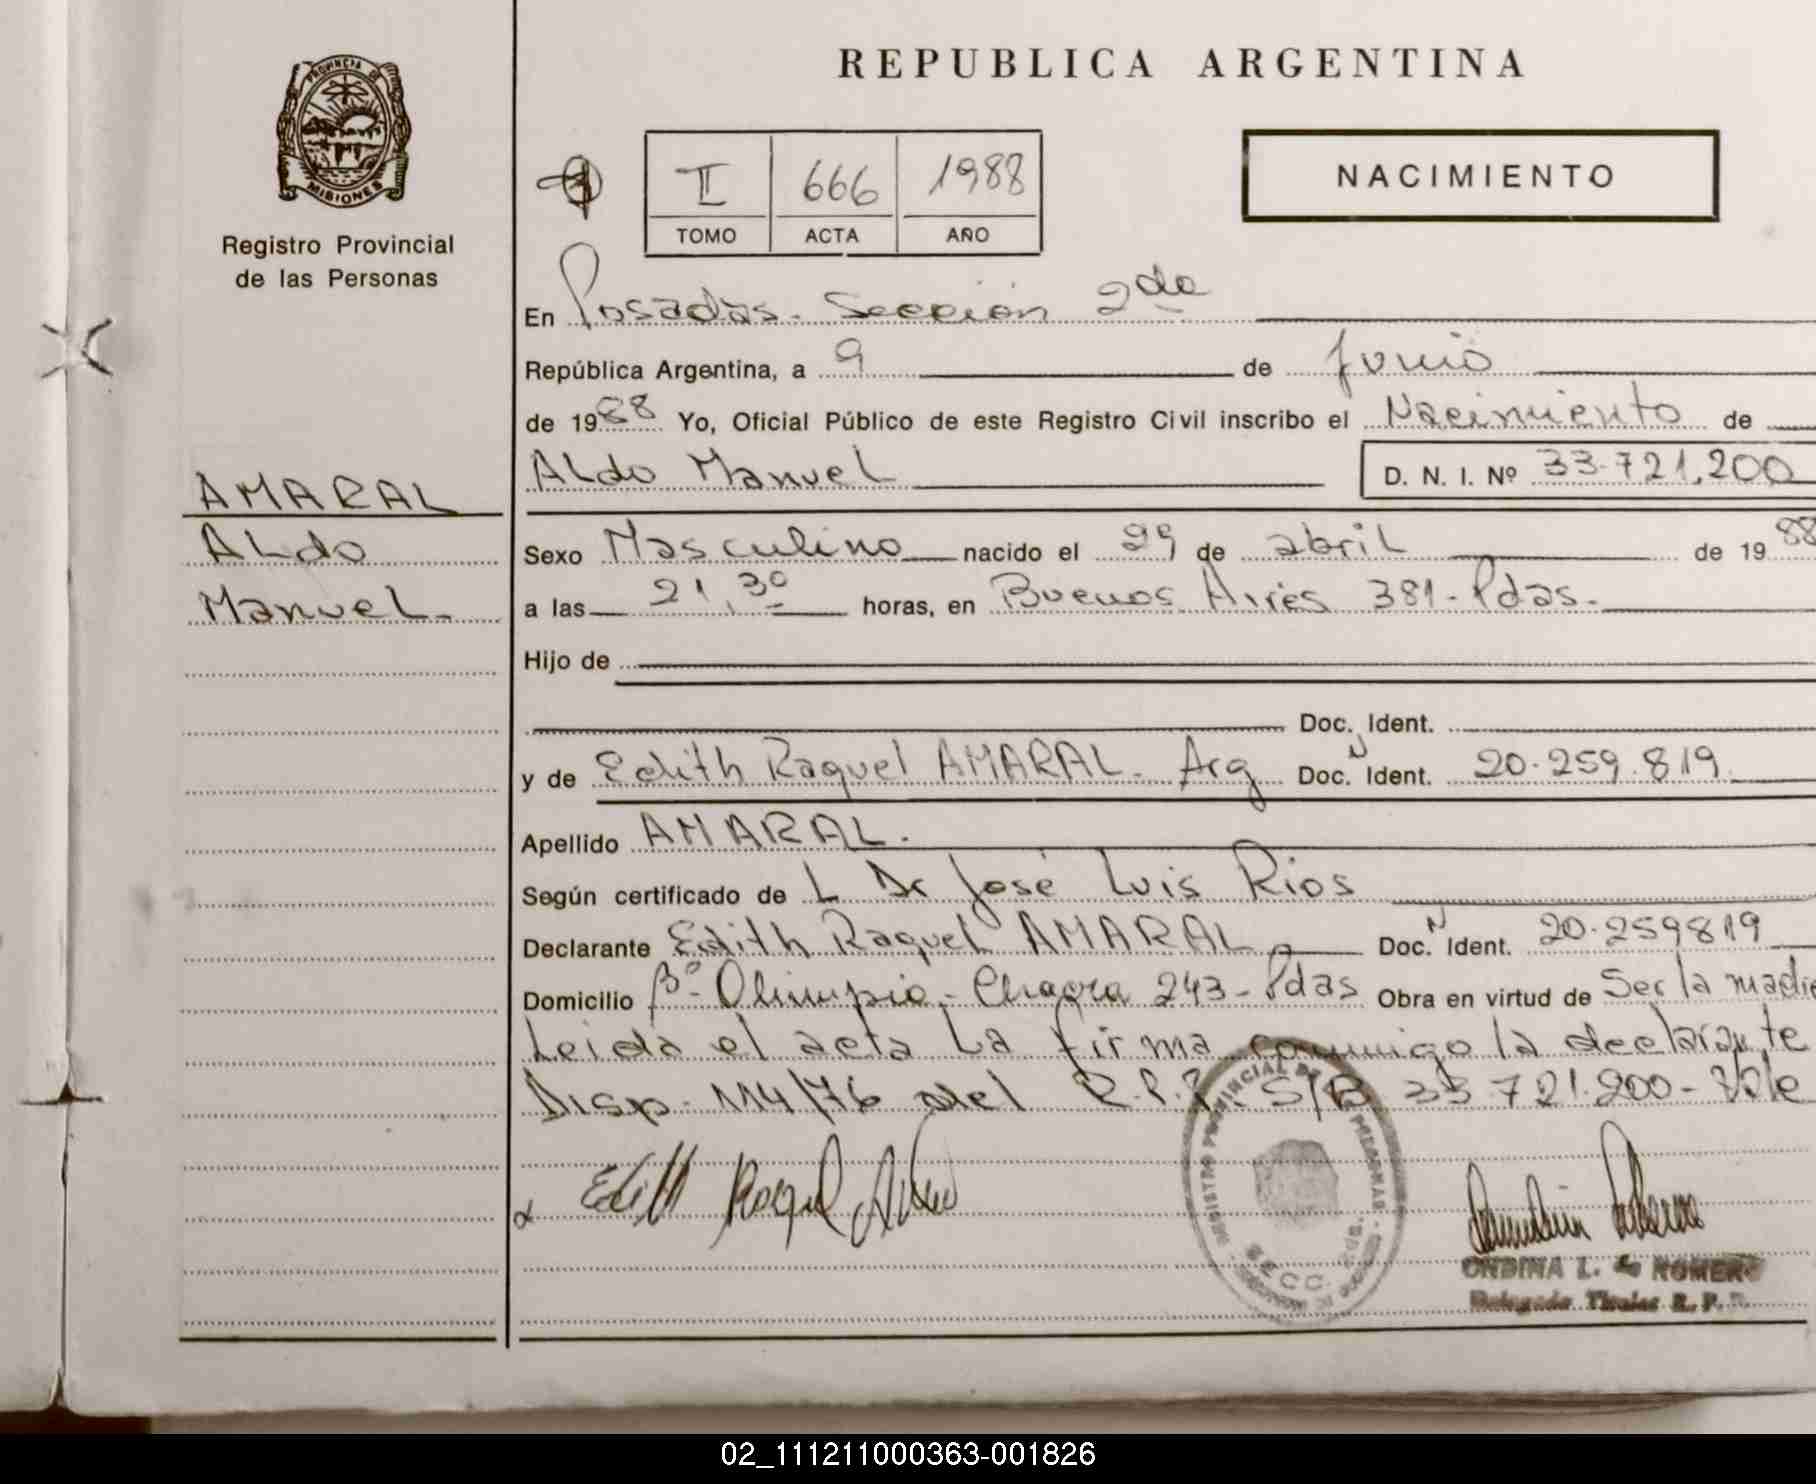 PROVINCIA DE
MISIONES
Registro Provincial
de las Personas
REPUBLICA ARGENTINA
NACIMIENTO
II 666 1988
TOMO ACTA AÑO
En Posadas. Sección 2da
República Argentina, a 9 de Junio
de 1988 Yo, Oficial Público de este Registro Civil inscribo el Nacimiento de
AMARAL
Aldo
Manuel.
Aldo Manuel D. N. I. Nº 33.721.200
Sexo Masculino nacido el 29 de abril de 1988
a las 21,30 horas, en Buenos Aires 381-Pdas.
Hijo de
Doc. Ident.
y de Edith Raquel AMARAL. Arg Doc. N Ident. 20.259.819
Apellido AMARAL.
Según certificado de L Dr José Luis Rios
Declarante Edith Raquel AMARAL Doc. N Ident. 20.259819
Domicilio Bº- Olimpio.- Chacra 243-Pdas Obra en virtud de Ser la madre
Leida el acta La firma conmigo la declarante
Disp. 114/76 del R.P.P. S/B 33.721.200- Vale
Edith Raquel
REGISTRO PROVINCIAL DE LAS PERSONAS
SECC.
ONBINA L. de ROMERO
Delegada Titular R. P. P.
02_111211000363-001826